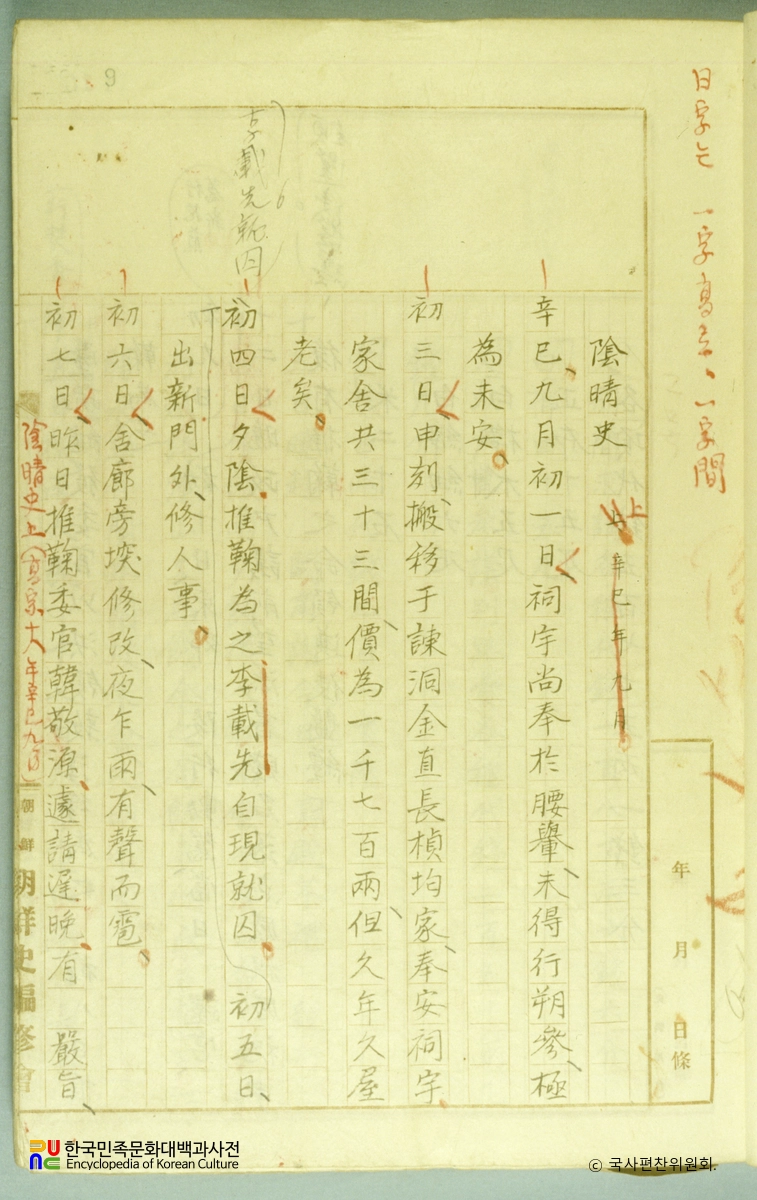 日字と 一字高さ、一字間
陰晴史 上 辛巳年九月
辛巳九月初一日祠宇尚奉於腰轝、未得行朔參、極
為未安。
初三日申刻、搬移于諫洞金直長楨均家、奉安祠宇、
家舍共三十三間、價為一千七百兩、但久年久屋
老矣。
李載先就囚
初四日夕陰推鞠為之李載先自現就囚。 初五日、
出新門外、修人事。
初六日舍廊旁堗修改、夜乍雨、有聲而雹。
初七日昨日推鞠委官韓敬源、遽請遲晚、有 嚴旨、
陰晴史上(高宗十八年辛巳九月)
朝鮮
朝鮮史編修會
年 月 日條
9
한국민족문화대백과사전
Encyclopedia of Korean Culture
© 국사편찬위원회.